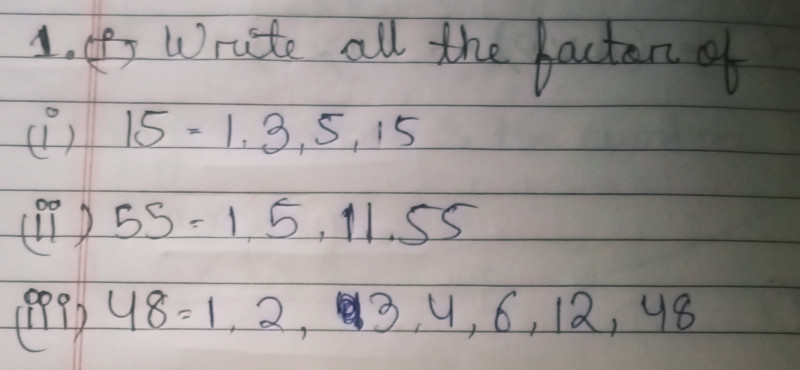 1. Write all the factor of
(i) 15 = 1, 3, 5, 15
(ii) 55 = 1, 5, 11, 55
(iii) 48 = 1, 2, 3, 4, 6, 12, 48